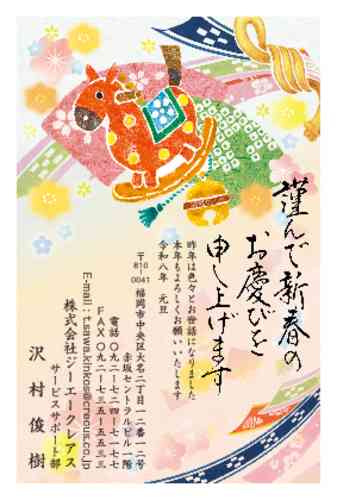 謹んで新春の
お慶びを
申し上げます
昨年は色々とお世話になりました
本年もよろしくお願いいたします
令和八年 元旦
〒810-0041 福岡市中央区大名二丁目一二番一二号
赤坂セントラルビル一階
電話 〇九二-七二四-七一七七
FAX 〇九二-七三五-五五三三
E-mail : t.sawa.kinkos@creous.co.jp
株式会社ジーエークレアス
サービスサポート部
沢村 俊樹